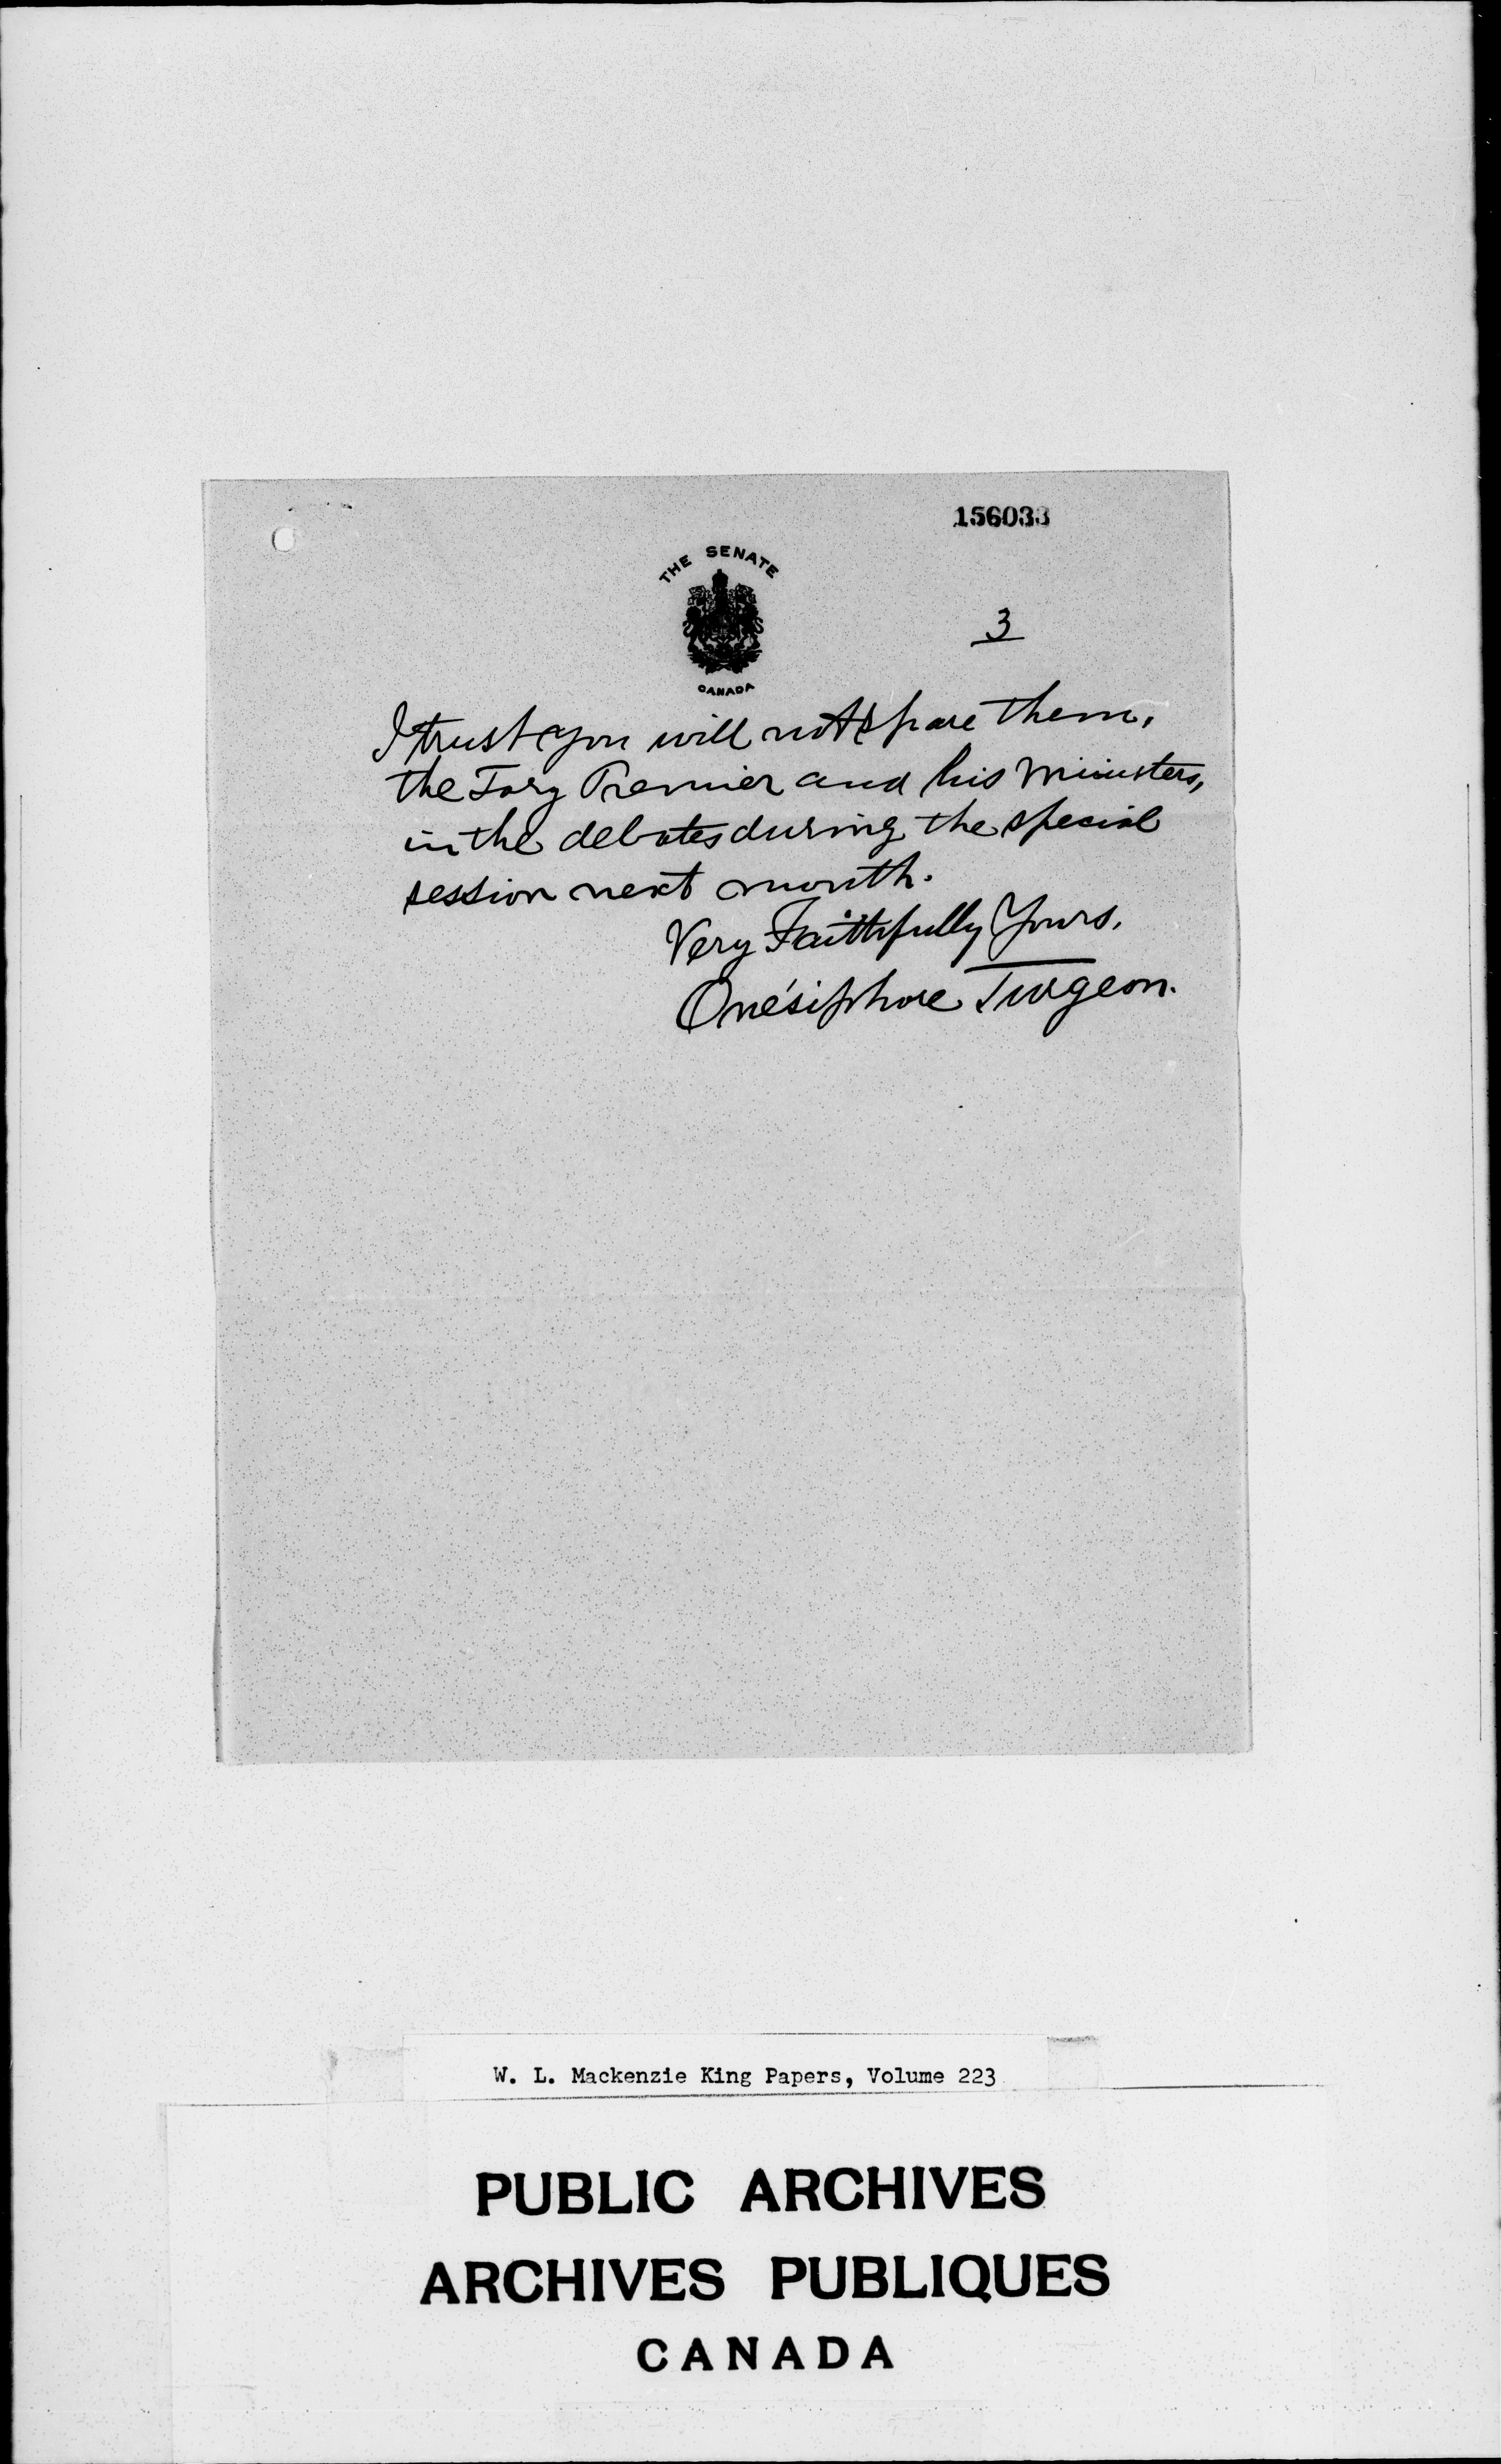 156033
THE SENATE
CANADA
3
I trust you will not spare them,
the Tory Premier and his Ministers,
in the debates during the special
session next month.
Very Faithfully Yours.
Onésiphore Turgeon.
W. L. Mackenzie King Papers, Volume 223
PUBLIC ARCHIVES
ARCHIVES PUBLIQUES
CANADA